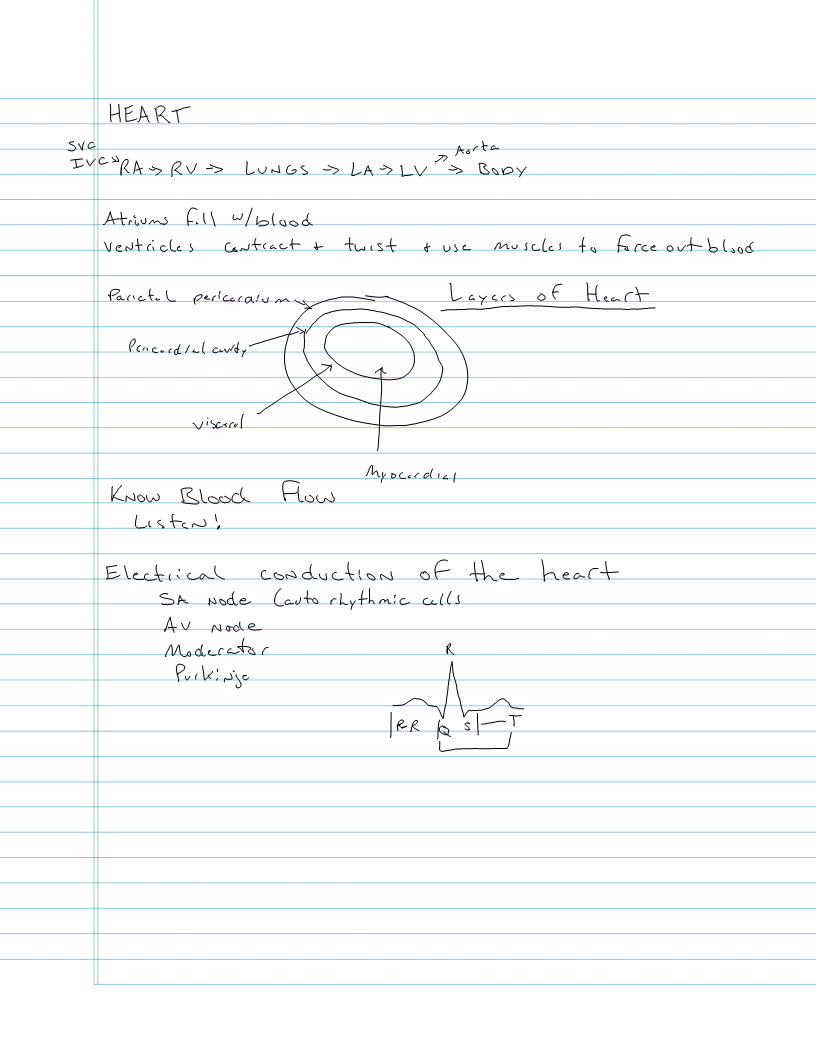 HEART
SVC
IVC → RA → RV → LUNGS → LA → LV → Aorta → BODY
Atriums fill w/blood
Ventricles contract + twist + use muscles to force out blood
Layers of Heart
Parietal pericardium
Pericardial cavity
visceral
Myocardial
KNOW Blood Flow
Listen!
Electrical conduction of the heart
SA Node (auto rhythmic cells
AV Node
Moderator
Purkinje
R
P-R Q S T